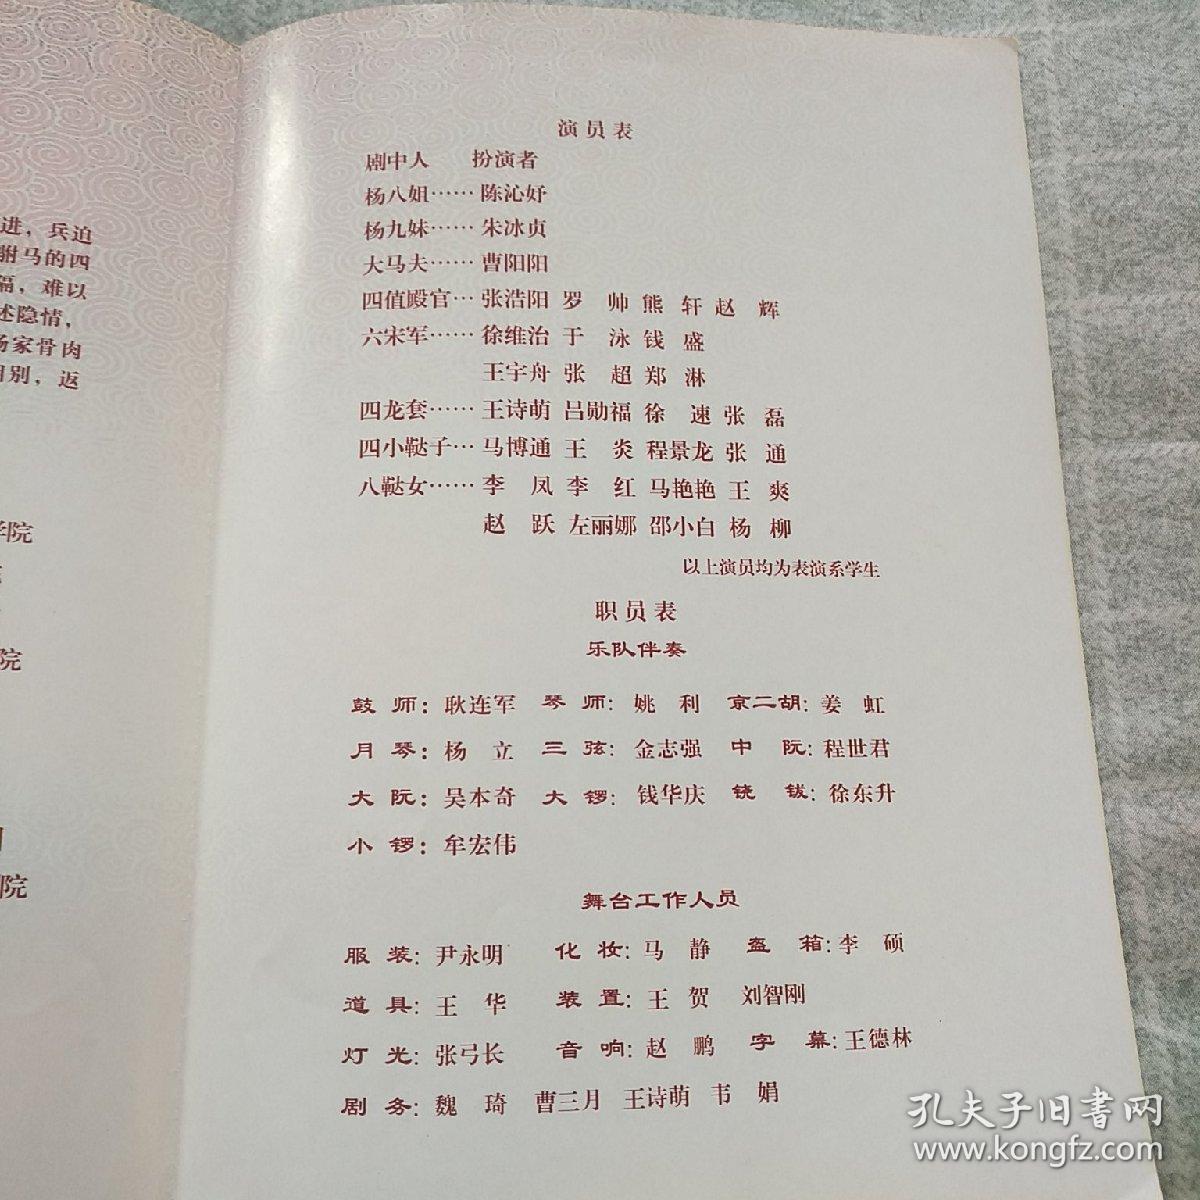 进，兵迫
驸马的四
难以
述隐情，
杨家骨肉
别，返
学院
院
院
演员表
剧中人 扮演者
杨八姐……陈沁妤
杨九妹……朱冰贞
大马夫……曹阳阳
四值殿官…张浩阳 罗 帅 熊 轩 赵 辉
六宋军……徐维治 于 泳 钱 盛
王宇舟 张 超 郑 淋
四龙套……王诗萌 吕勋福 徐 速 张 磊
四小鞑子…马博通 王 炎 程景龙 张 通
八鞑女……李 凤 李 红 马艳艳 王 爽
赵 跃 左丽娜 邵小白 杨 柳
以上演员均为表演系学生
职员表
乐队伴奏
鼓 师：耿连军 琴 师：姚 利 京二胡：姜 虹
月 琴：杨 立 三 弦：金志强 中 阮：程世君
大 阮：吴本奇 大 锣：钱华庆 铙 钹：徐东升
小 锣：牟宏伟
舞台工作人员
服 装：尹永明 化 妆：马 静 盔 箱：李 硕
道 具：王 华 装 置：王 贺 刘智刚
灯 光：张弓长 音 响：赵 鹏 字 幕：王德林
剧 务：魏 琦 曹三月 王诗萌 韦 娟
孔夫子旧书网
www.kongfz.com